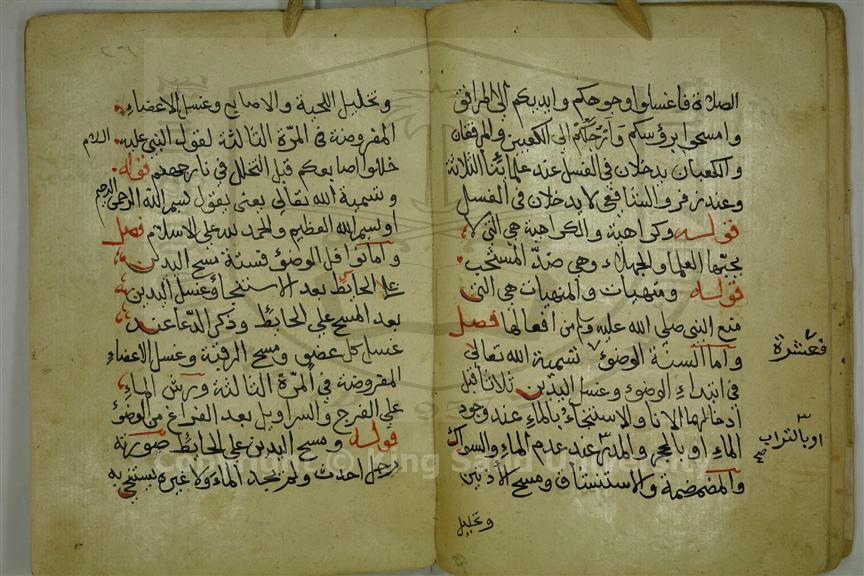 الصلاة فاغسلوا وجوهكم وايديكم الى المرافق
وامسحوا برؤسكم وارجلكم الى الكعبين والمرفقان
والكعبان يدخلان في الغسل عند علمائنا الثلاثة
وعند زفر والشافعي لا يدخلان في الغسل
قوله وكراهية والكراهية هي التي لا
يحبها العلما والجهلاء وهي ضد المستحب
قوله ومنهيات والمنهيات هي التي
منع النبي صلى الله عليه وسلم من افعالها فصل
واما السنة الوضوء تسمية الله تعالى
فعشرة
في ابتداء الوضوء وغسل اليدين ثلاثا قبل
ادخالهما الانا والاستنجاء بالماء عند وجود
الماء او بالحجر والمدر عند عدم الماء والسواك
او بالتراب
صح
والمضمضة والاستنشاق ومسح الاذنين
وتخليل
وتخليل اللحية والاصابع وغسل الاعضاء
المفروضة في المرة الثالثة لقول النبي عليه السلام
خللوا اصابعكم قبل التخلل في نار جهنم قوله
وتسمية الله تعالى يعني يقول بسم الله الرحمن الرحيم
او بسم الله العظيم والحمد لله على الاسلام فصل
واما نوافل الوضوء فستة مسح اليدين
على الحائط بعد الاستنجاء وغسل اليدين
بعد المسح على الحائط وذكر الدعا عند
غسل كل عضو ومسح الرقبة وغسل الاعضاء
المفروضة في المرة الثالثة ورش الماء
على الفرج والسراويل بعد الفراغ من الوضوء
قوله ومسح اليدين على الحائط صورته
رجل احدث ولم يجد الماء ولا غيره يستنجي به
Copyright © King Saud University